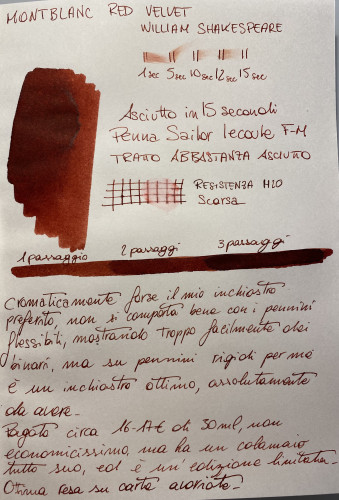 MONTBLANC RED VELVET
WILLIAM SHAKESPEARE
1sec 5sec 10sec 12sec 15sec
Asciutto in 15 secondi
Penna Sailor Lecoule F-M
TRATTO ABBASTANZA ASCIUTTO
RESISTENZA H2O
Scarsa
1 passaggio 2 passaggi 3 passaggi
Cromaticamente forse il mio inchiostro
preferito, non si comporta bene con i pennini
flessibili, mostrando troppo facilmente dei
binari, ma su pennini rigidi per me
è un inchiostro ottimo, assolutamente
da avere -
Pagato circa 16-17€ di 30ml, non
economicissimo, ma ha un calamaio
tutto suo, ed è un'edizione limitata -
Ottima resa su carta avoriata -